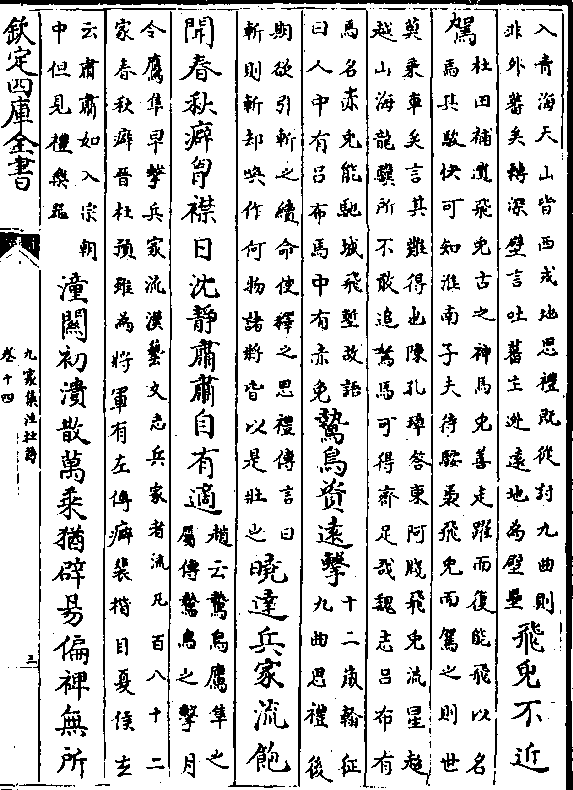 入青海天山皆西戎地思禮既從討九曲則
非外蕃矣轉深壁言吐舊主逃遠地為壁壘
飛兔不近
駕
杜田補遺飛兔古之神馬兔善走雖而復能飛以名
馬其駿快可知淮南子夫待騕褭飛兔而駕之則世
莫乘車矣言其難得也陳孔璋答東阿牋飛兔流星超
越山海龍驥所不敢追駑馬可得齊足哉魏志呂布有
馬名赤兔能馳城飛塹故語
曰人中有呂布馬中有赤兔
鷙鳥資遠擊
十二歲翰征
九曲思禮後
期欲引斬之續命使釋之思禮傳言曰
斬則斬却喚作何物諸將皆以是壯之
曉達兵家流飽
聞春秋癖胷襟日沈靜肅肅自有適
趙云鷙鳥鷹隼之
屬傳鷙鳥之擊月
令鷹隼早擊兵家流漢藝文志兵家者流凡百八十二
家春秋癖晉杜預雖為將軍有左傳癖裴楷目夏侯玄
云肅肅如入宗朝
中但見禮樂器
潼關初潰散萬乘猶辟易偏裨無所
欽定四庫全書
九家集注杜詩
卷十四
三